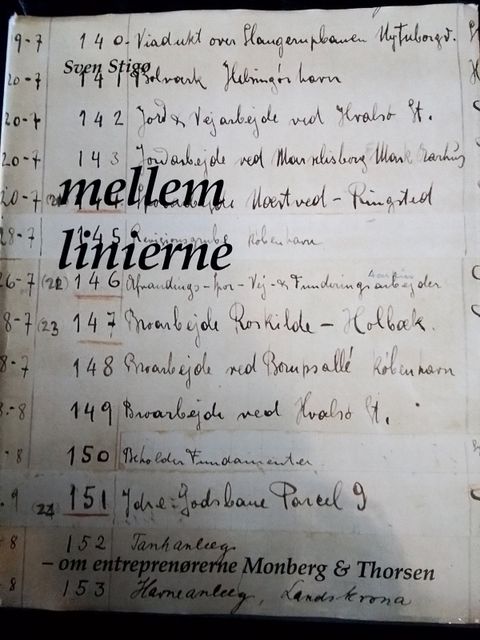 9-7 140. Viadukt over Slangerupbanen Nytuborgv.
Sven Stigø
20-7 141 Bolværk Helsingør havn
20-7 142 Jord & Vejarbejde ved Hvalsø St.
20-7 143 Jordarbejde ved Marselisborg Mark Aarhus
mellem
20-7 144 Næstved - Ringsted
28-7 145 Revisionsgrube København
linierne
26-7 (22) 146 Afvandings-Spor-Vej-& Funderingsarbejder
8-7 (23 147 Broarbejde Roskilde - Holbæk.
8-7 148 Broarbejde ved Borups allé København
8-8 149 Broarbejde ved Hvalsø St.
-8 150 Beholder Fundamenter
.9 24 151 Ydre-Godsbane Parcel 9
8 152 Tankanlæg
– om entreprenørerne Monberg & Thorsen
8 153 Havneanlæg, Landskrona